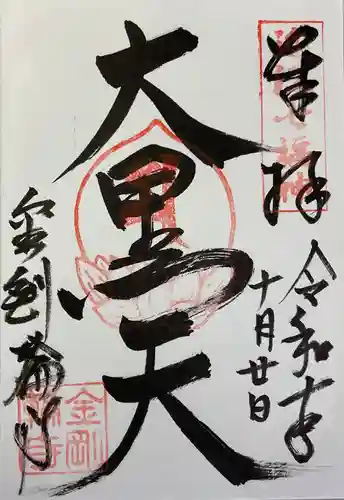 奉拝
令和六年
十月廿日
大黒天
金剛輪寺
金剛
輪寺